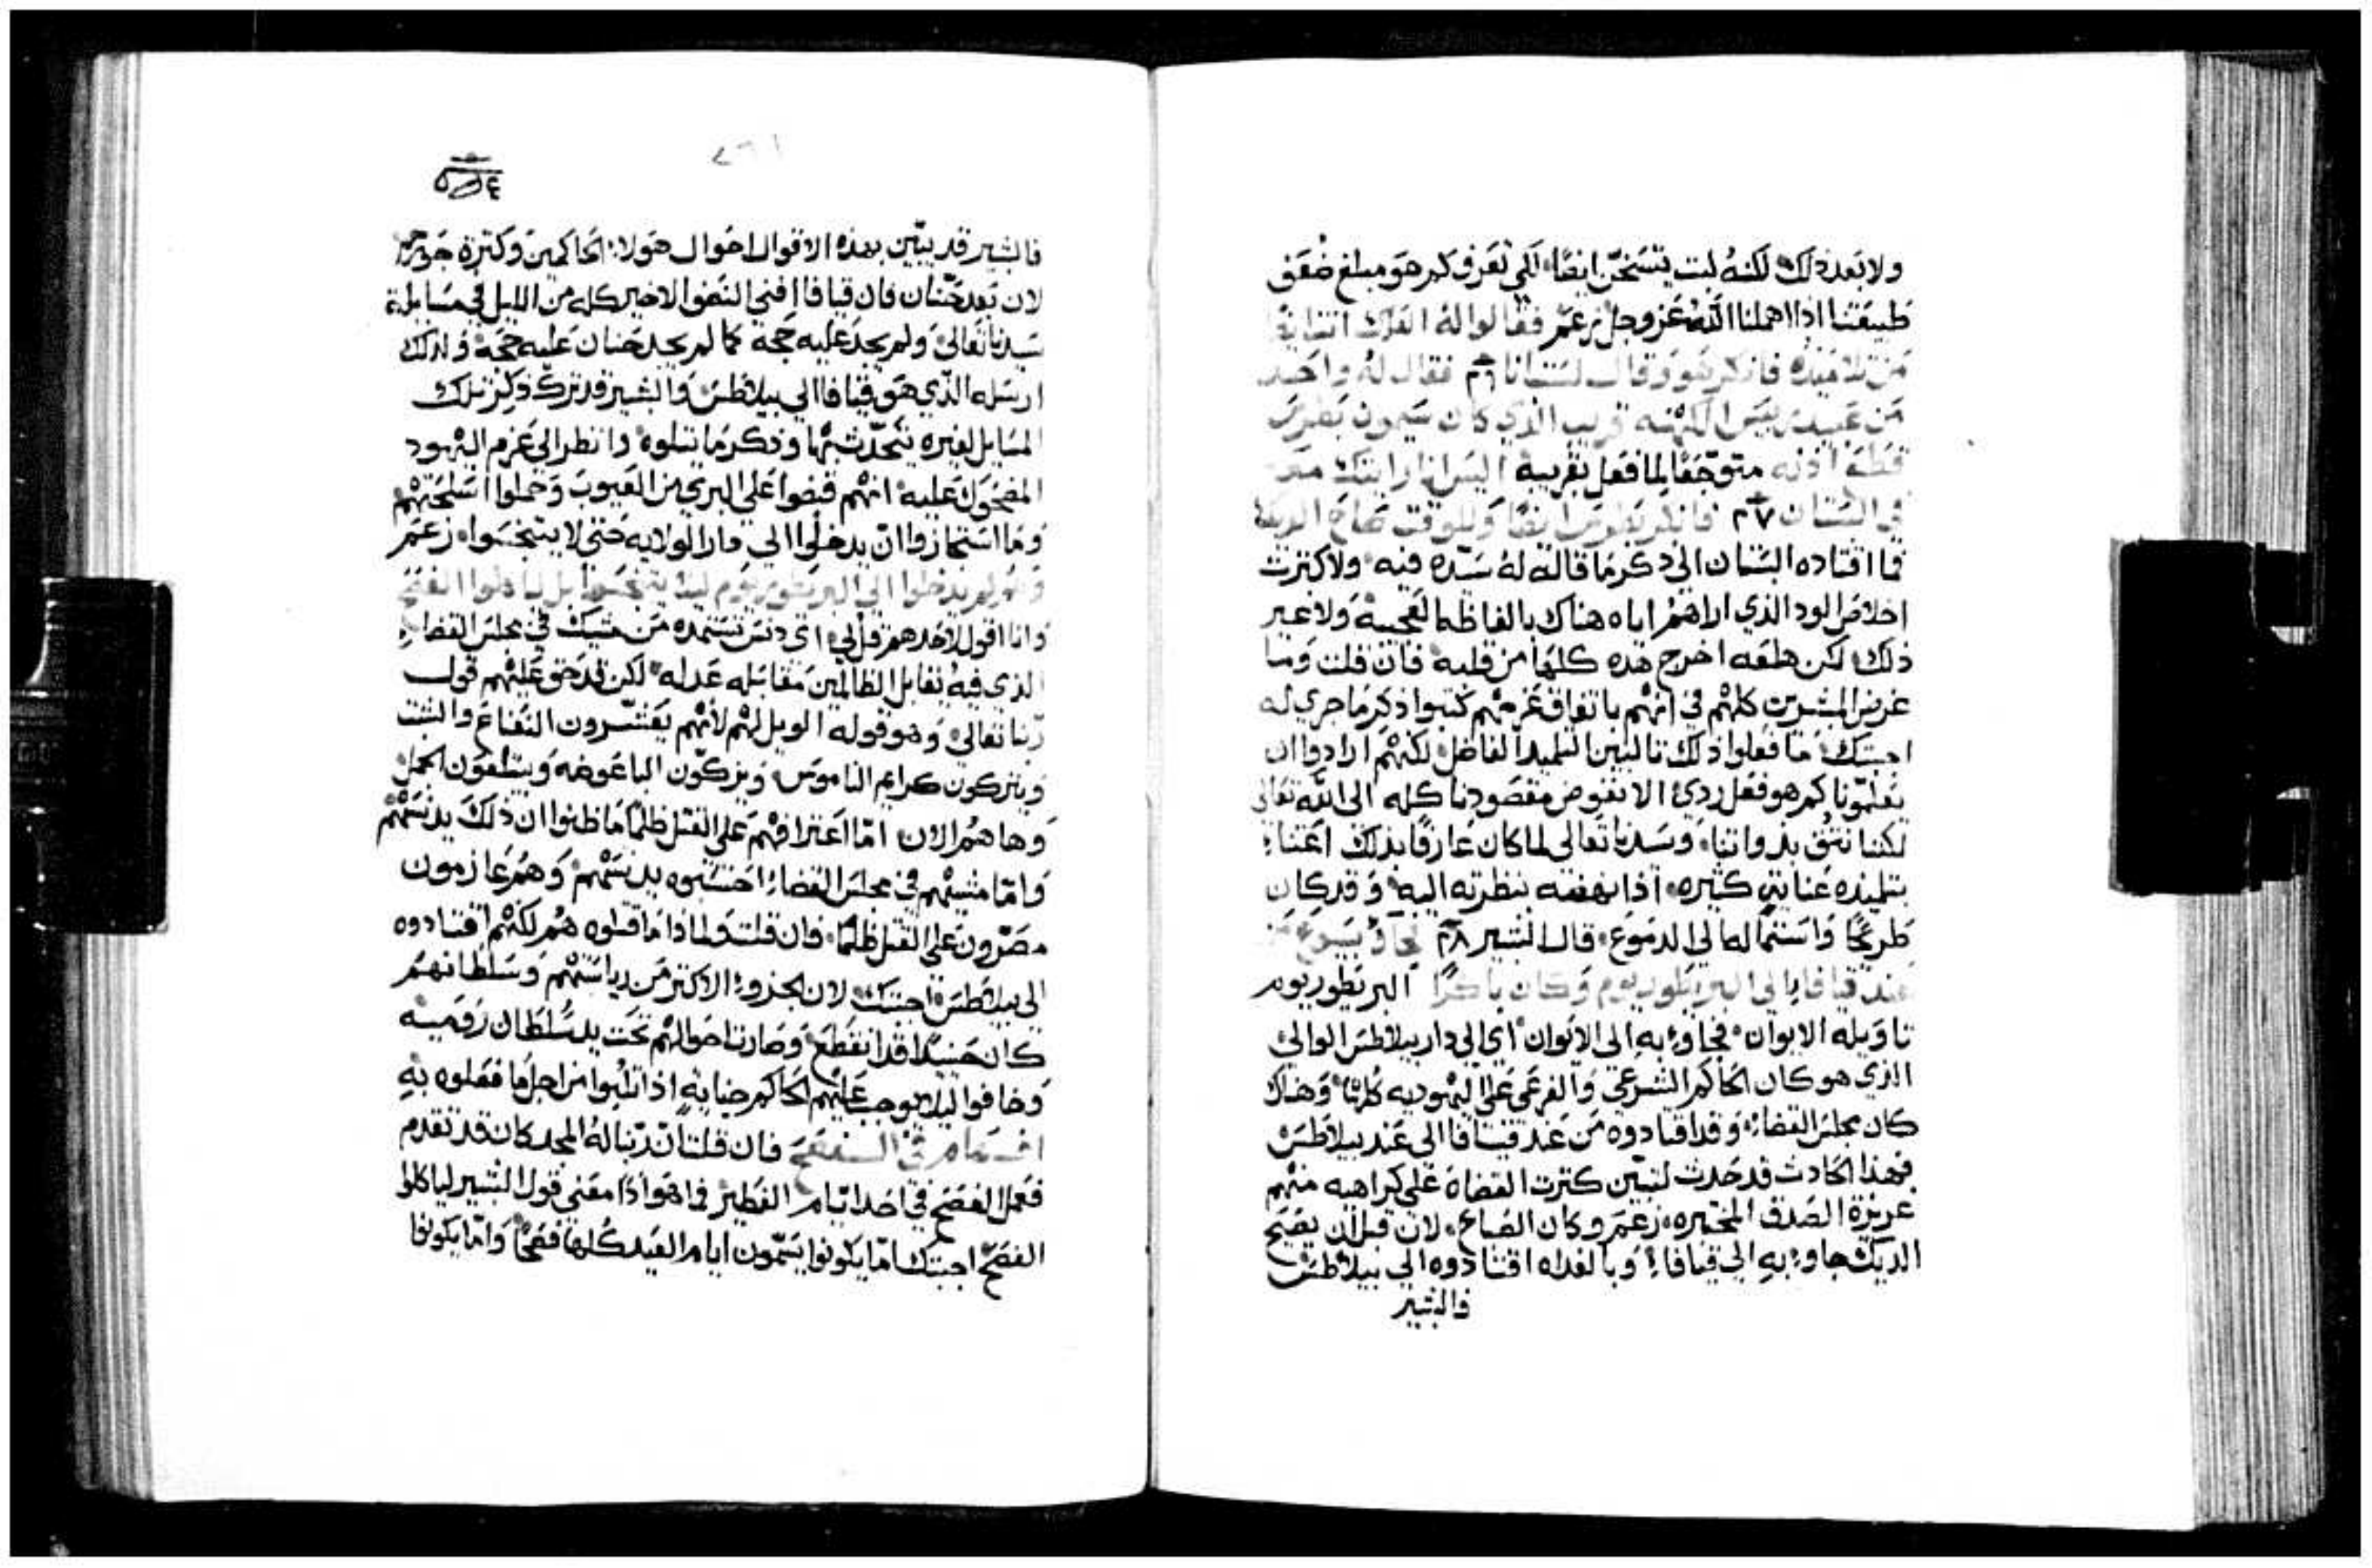 ولا بعد ذلك لكنه لبث يتسخن ايضًا لكي تعرف كم هو مبلغ ضعف
طبيعتنا اذا اهملنا الله عز وجل زعم فقالوا له العلك انت ايضا
من تلاميذه فانكر هو وقال لست انا ٢٦ فقال له واحد
من عبيد رييس الكهنه قريب الذي كان سيمون بطرس
قطع اذنه متوجعًا لما فعل بقريبه اليس انا رايتك معه
في البستان ٢٧ فانكر بطرس ايضًا وللوقت صاح الديك
فما اقتاده البستان الى ذكر ما قاله له سيده فيه ولا كثرت
اخلاص الود الذي اراهم اياه هناك بالفاظه العجيبة ولا غير
ذلك لكن هلعه اخرج هذه كلها من قلبه فان قلت وما
غرض المبشرين كلهم في انهم باتفاق عزمهم كتبوا ذكر ما جري له
اجبتك ما فعلوا ذلك ثالبين التلميذ الفاضل لكنهم ارادوا ان
يعلمونا كم هو فعل ردي الا نفوض مقصودنا كله الى الله تعالى
لكننا نثق بذواتنا وسيدنا تعالى لما كان عارفًا بذلك اعتنا
بتلميذه عناية كثيره اذ انهضه بنظرته اليه وقد كان
طريحًا واستماله الى الدموع قال البشير ٢٨ فجاوا بيسوع من
عند قيافا الى البريطوريوم وكان باكرًا البريطوريوم
تاويله الايوان فجاوا به الى الايوان اي الى دار بيلاطس الوالي
الذي هو كان الحاكم الشرعي والفرعي على اليهوديه كلها وهناك
كان مجلس القضاء وقد اقتادوه من عند قيافا الى عند بيلاطس
فهذا الحادث قد حدث لتبين كثرت القضاة على كراهيه منهم
عريزة الصدق المختبره زعم وكان الصباح لان قبل ان يصيح
الديك جاوا به الى قيافا وبالغداه اقتادوه الى بيلاطس
فالبشير
فالبشير قد بيّن بهذه الاقوال احوال هولاء الحاكمين وكثرة جورهم
لان بعد حنان فان قيافا افنى النصف الاخير كله من الليل في مسايلة
سيدنا تعالى ولم يجد عليه حجة كما لم يجد حنان عليه حجة ولذلك
ارسله الذي هو قيافا الى بيلاطس والبشير قد ترك ذكر تلك
المسايل لغيره يتحدث بها وذكر ما يتلوه وانظر الى عزم اليهود
المضحوك عليه انهم قبضوا على البري من العيوب وحملوا اسلحتهم
وما استجازوا ان يدخلوا الى دار الولايه حتى لا يتنجسوا زعم
وهم لم يدخلوا الى البريطوريوم ليلا يتنجسوا بل لياكلوا الفصح
وانا اقول لاحدهم قل لي اى دنس تستمده من مشيك في مجلس القضاء
الذي فيه يقابل الظالمين مقابله عدله لكن قد حق عليهم قول
ربنا تعالى وهو قوله الويل لهم لانهم يعشرون النعناع والشبت
ويتركون كرايم الناموس ويزكون الباعوضه ويبتلعون الجمل
وها هم الان اما اعترافهم على القتل ظلمًا ما ظنوا ان ذلك يدنسهم
واما مشيهم في مجلس القضاء احتسبوه يدنسهم وهم عازمون
مصرون على القتل ظلمًا فان قلت ولماذا ما قتلوه هم لكنهم اقتادوه
الى بيلاطس اجبتك لان الجزء الاكثر من رياستهم وسلطانهم
كان حينيذ قد انقطع وصارت احوالهم تحت يد سلطان روميه
وخافوا ليلا يوجب عليهم الحاكم جنايةٍ اذا تلبوا من اجل ما فعلوه بهِ
فان قلت ان ربنا له المجد كان قد تقدم
فعمل الفصح في احد ايام الفطير فما هو اذًا معنى قول البشير لياكلوا
الفصح اجبتك اما يكونوا يسمون ايام العيد كلها فصحًا واما يكونوا